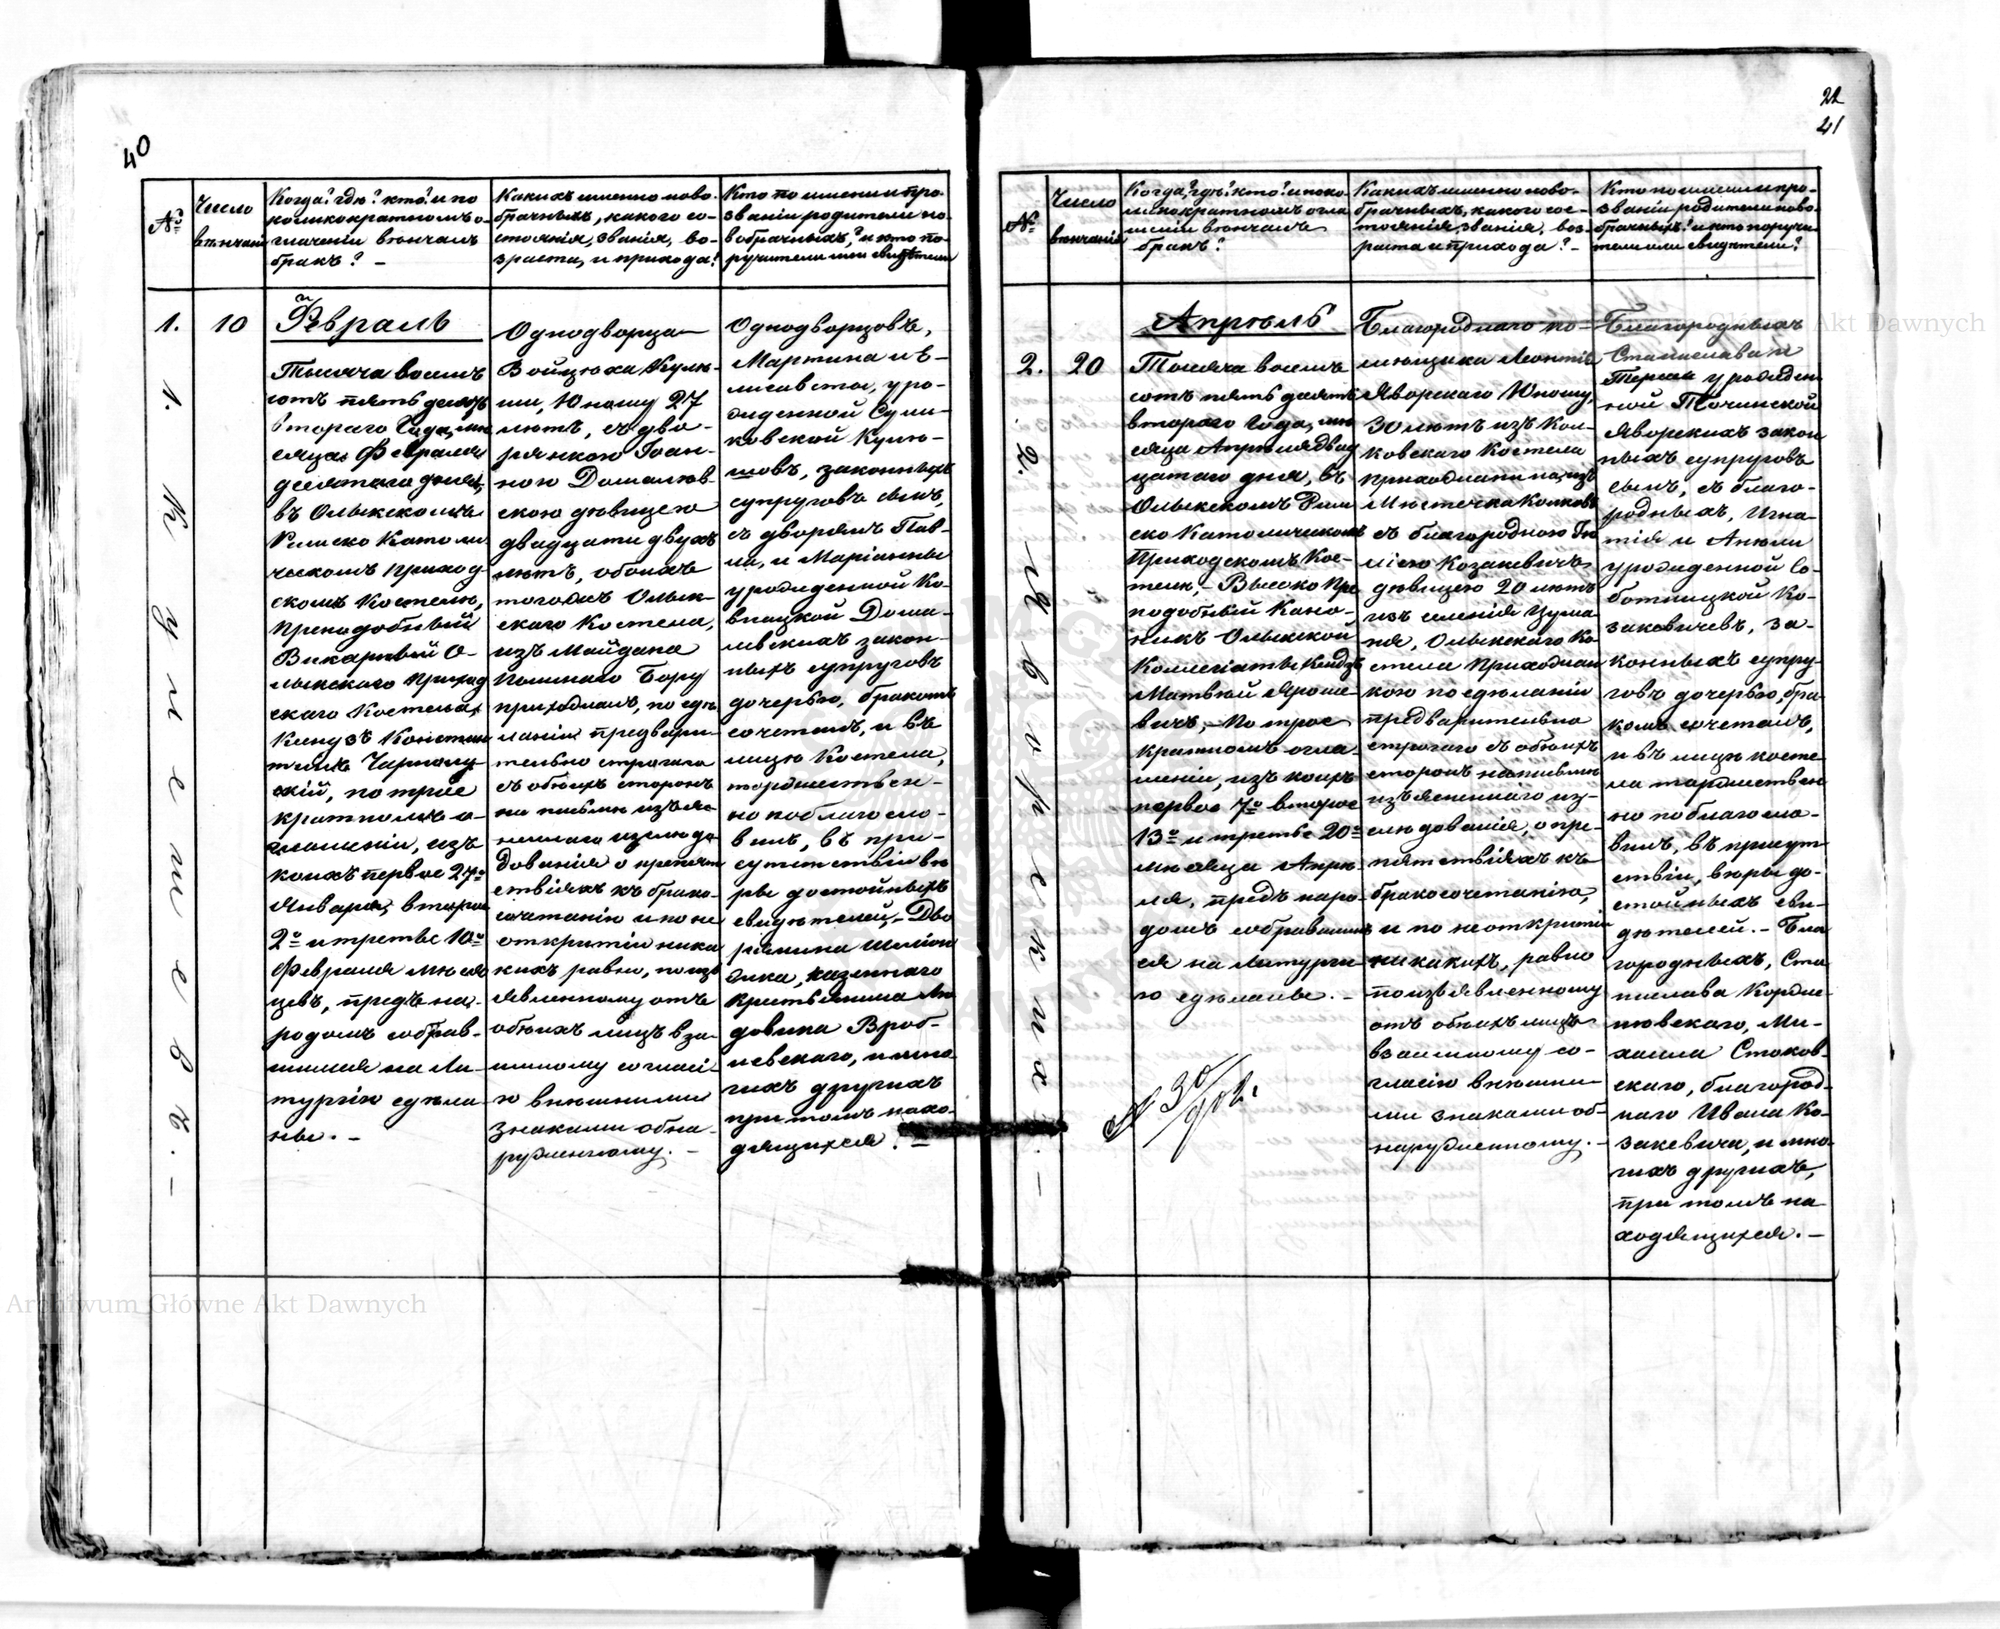 40
№
Число
вѣнчанія
Когда? гдѣ? кто? и по
коликократномъ о-
глашеніи вѣнчалъ
бракъ? –
Какихъ именно ново-
брачныхъ, какого со-
стоянія, званія, во-
зраста, и прихода?
Кто по имени и про-
званіи родители но-
вобрачныхъ? и кто по-
ручители или свидѣтели
1.
10
Февраль
Тысяча восемь
сотъ пятьдесятъ
втораго Года, мѣ
сяца Февраля
десятаго дня,
въ Олыкскомъ
Римско Католи
ческомъ приход
скомъ Костелѣ,
преподобный
Викарный О-
лыкскаго приход
скаго Костела,
Ксендзъ Констан
тинъ Чарнолу-
скій, по трое
кратномъ о-
глашеніи, изъ
коихъ первое 27го
Января, второе
2го и третье 10го
Февраля мѣся
цевъ, предъ на-
родомъ собрав-
шимся на Ли-
тургію сдѣла
ны. –
Однодворца
Войцѣха Кулѣ-
ши, Юношу 27
лѣтъ, съ дво-
рянкою Іоан-
ною Домалев-
скою дѣвицею
двадцати двухъ
лѣтъ, обоихъ
тогожъ Олык-
скаго Костела,
изъ Майдана
Бору
прихожанъ, по сдѣ
ланіи предвари-
тельно строгаго
съ обѣихъ сторонъ
на письмѣ изъяс
неннаго изслѣдо
дованія о препят
ствіяхъ къ брако-
сочетанію и по не
открытіи ника
кихъ равно, по изъ
явленному отъ
обѣихъ лицъ вза-
имному согласі-
ю внѣшними
знаками обна-
руженному. –
Однодворцовъ,
Мартина и Е-
лисаветы, уро-
жденной Сули-
ковской Кулѣ-
шовъ, законныхъ
супруговъ сынъ,
съ дворянъ Пав-
ла, и Маріанны
урожденной Ко-
внацкой Дома-
левскихъ закон-
ныхъ супруговъ
дочерью, бракомъ
сочеталъ, и въ
лицѣ Костела,
торжествен-
но поблагосло-
вилъ, въ при-
сутствіи вѣ
ры достойныхъ
свидѣтелей, – Дво
рянина
казеннаго
крестьянина Лю
довика Вроб-
левскаго, и мно-
гихъ другихъ
при томъ нахо-
дящихся. –
1. Кулешевъ. –
22
41
№
Число
вѣнчанія
Когда? гдѣ? кто? и поко-
ликократномъ огла
шеніи вѣнчалъ
бракъ?
Какихъ именно ново-
брачныхъ, какого сос-
тоянія, званія, воз-
раста и прихода? –
Кто по имени и про-
званіи родители ново-
брачныхъ? и кто поручи-
тели или свидѣтели?
2.
20
Апрѣль
Тысяча восемь
сотъ пятьдесятъ
втораго Года, мѣ
сяца Апрѣля двад
цатаго дня, въ
Олыкскомъ Рим
ско Католическомъ
Приходскомъ Кос-
телѣ, – Высоко Пре
подобный Кано-
никъ Олыкской
Коллегіаты Ксендзъ
Матвѣй Яроше
вичъ, – По трое
кратномъ огла
шеніи, изъ коихъ
первое 7го второе
13го и третье 20го
мѣсяца Апрѣ
ля, предъ наро-
домъ собравшим
ся на Литурги
ю сдѣланы. –
Благороднаго по-
мѣщика Леонтія
Яворскаго Юношу,
30 лѣтъ изъ Кол-
ковскаго Костела
прихожанина, изъ
Мѣстечка Колковъ
съ благородною Эм
Козакевичъ
дѣвицею 20 лѣтъ
изъ селенія Цума
ня, Олыкскаго Ко
стела Прихожан
кою по сдѣланіи
предварительно
строгаго съ обѣихъ
сторонъ на письмѣ
изъясненнаго из-
слѣдованія, о пре-
пятствіяхъ къ
бракосочетанію,
и по неоткрытіи
никакихъ, равно
по изъявленному
отъ обѣихъ лицъ
взаимному со-
гласію внѣшни-
ми знаками об-
наруженному. –
Благородныхъ
Станислава и
Терезіи урожден
ной Точинской
Яворскихъ закон
ныхъ супруговъ
сынъ, съ благо-
родныхъ, Игна-
тія и Анели
урожденной Со-
ботницкой Ко-
закевичевъ, за-
конныхъ супру-
говъ дочерью, бра
комъ сочеталъ,
и въ лицѣ косте
ла торжествен
но поблагосло-
вилъ, въ присут
ствіи, вѣры до-
стойныхъ сви-
дѣтелей. – Бла
городныхъ, Ста
нислава Корже-
нѣвскаго, Ми-
хаила Стоков-
скаго, благород-
наго Ивана Ко-
закевича, и мно
гихъ другихъ,
при томъ на
ходящихся. –
2. Яворскихъ. –
Archiwum Główne Akt Dawnych
Archiwum Główne Akt Dawnych